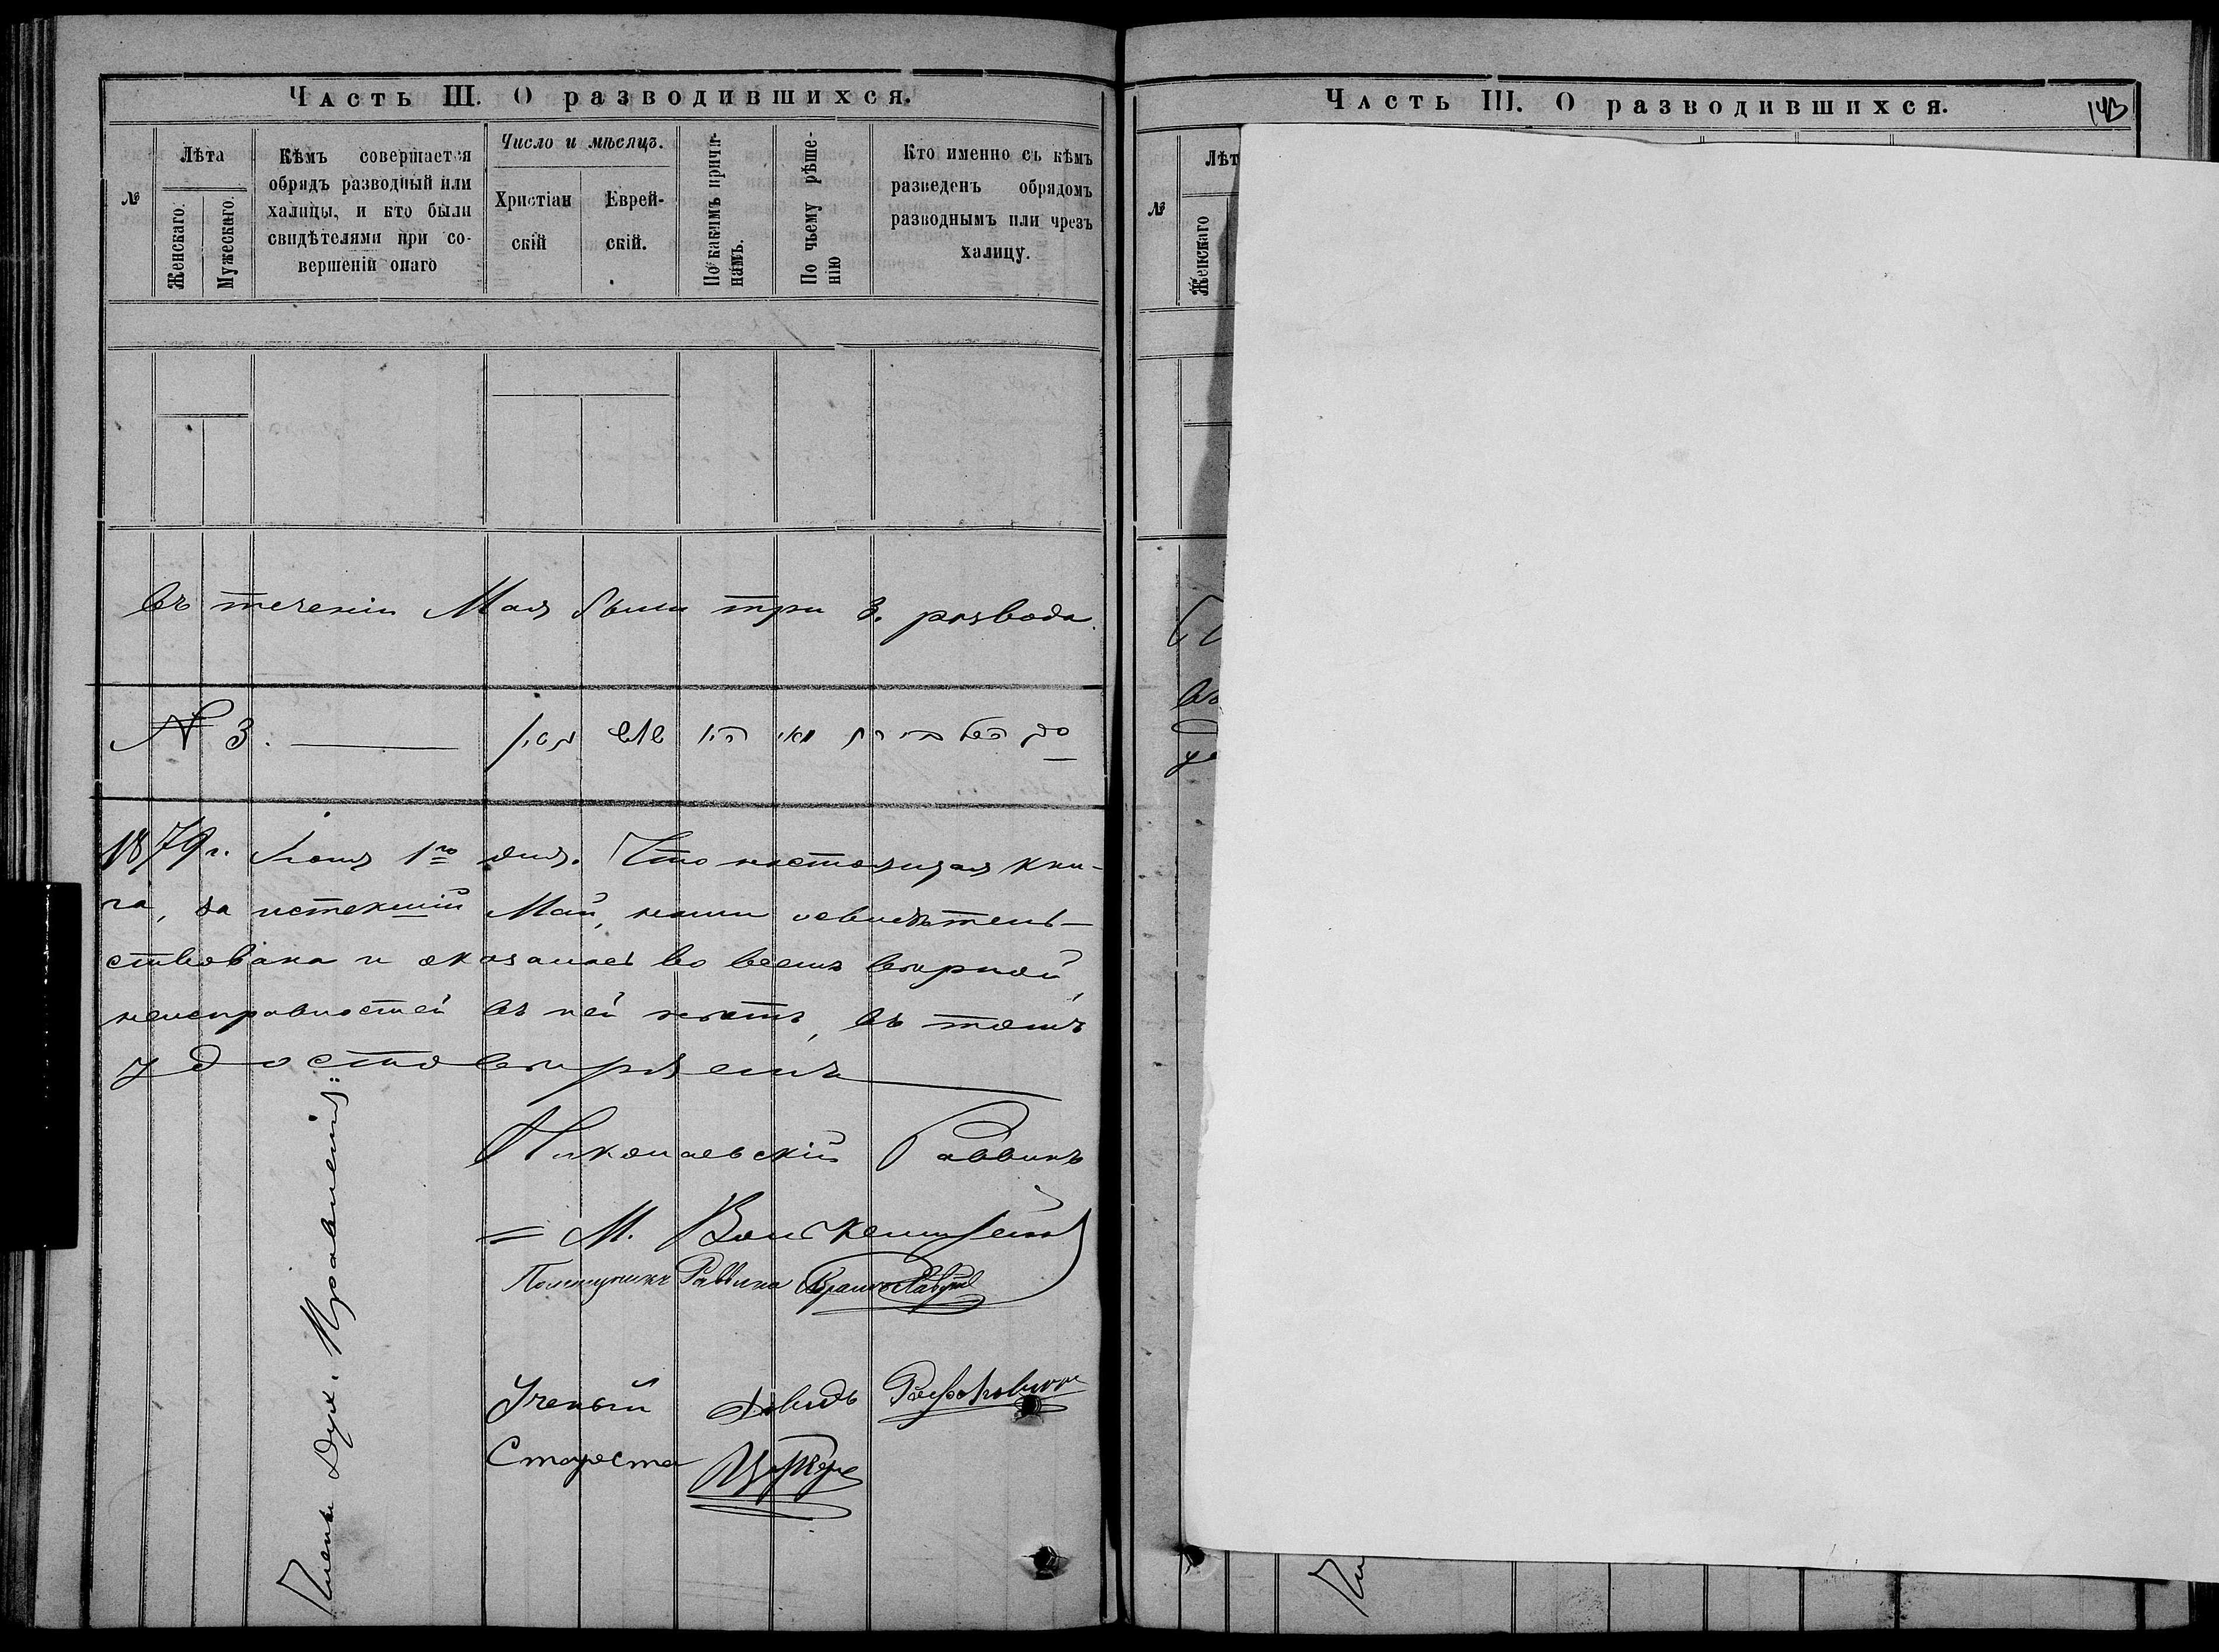 Часть III. О разводившихся.
№
Лѣта
Женскаго.
Мужескаго.
Кѣмъ совершается
обрядъ разводный или
халицы, и кто были
свидѣтелями при со-
вершеніи онаго
Число и мѣсяцъ.
Христіан
скій
Еврей-
скій.
По какимъ причи-
намъ.
По чьему рѣше-
нію
Кто именно съ кѣмъ
разведенъ обрядомъ
разводнымъ или чрезъ
халицу.
въ теченіи Мая были три 3. развода.
№ 3.
1879 г. Іюня 1го дня. Что настоящая кни-
га, за истекшій Май, нами освидѣтель-
ствована и оказалась во всемъ вѣрной,
неисправностей въ ней нѣтъ, въ томъ
удостовѣряемъ
Николаевскій Раввинъ
М.
Помощникъ Раввина
Ученый Давидъ
Староста
Члены Дух. Правленія:
Часть III. О разводившихся.
143
№
Лѣт
Женскаго
въ